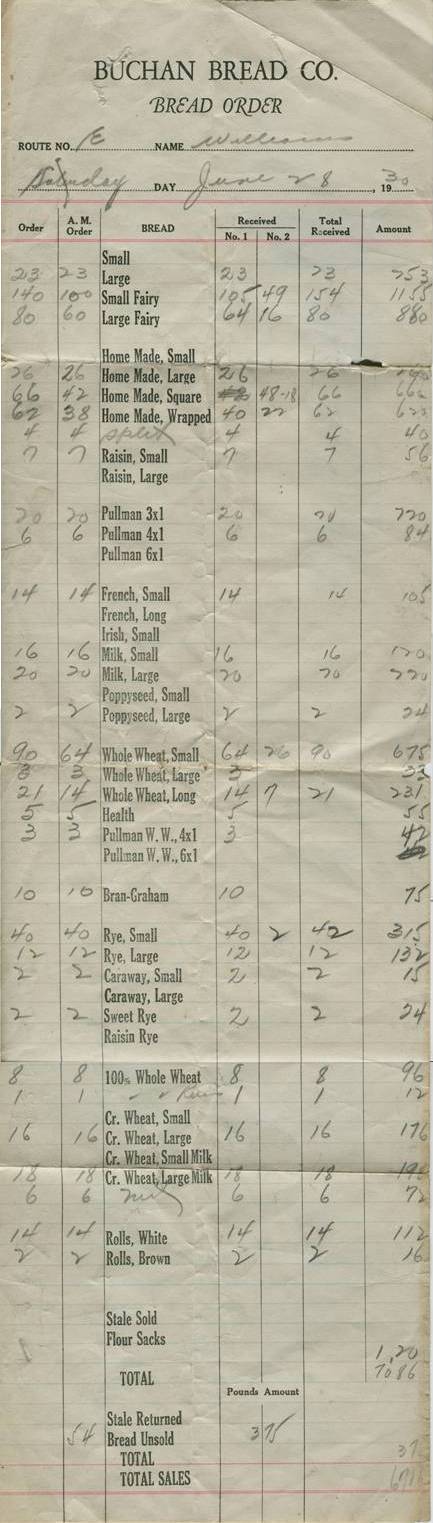 BUCHAN BREAD CO.
BREAD ORDER
ROUTE NO. E NAME Williams
Saturday DAY June 28, 1930
Order A. M. Order BREAD Received No. 1 No. 2 Total Received Amount
Small
23 23 Large 23 23 253
140 100 Small Fairy 105 49 154 1155
80 60 Large Fairy 64 16 80 880
Home Made, Small
26 26 Home Made, Large 26 26
66 42 Home Made, Square 48-18 66 660
62 38 Home Made, Wrapped 40 22 62
4 4 split 4 4 40
7 7 Raisin, Small 7 7 56
Raisin, Large
20 20 Pullman 3x1 20 20 220
6 6 Pullman 4x1 6 6 84
Pullman 6x1
14 14 French, Small 14 14 105
French, Long
Irish, Small
16 16 Milk, Small 16 16 120
20 20 Milk, Large 20 20 220
Poppyseed, Small
2 2 Poppyseed, Large 2 2 24
90 64 Whole Wheat, Small 64 26 90 675
3 3 Whole Wheat, Large 3 33
21 14 Whole Wheat, Long 14 7 21 231
5 5 Health 5 55
3 3 Pullman W. W., 4x1 3 42
Pullman W. W., 6x1
10 10 Bran-Graham 10 75
40 40 Rye, Small 40 2 42 315
12 12 Rye, Large 12 12 132
2 2 Caraway, Small 2 2 15
Caraway, Large
2 2 Sweet Rye 2 2 24
Raisin Rye
8 8 100% Whole Wheat 8 8 96
1 1 1 1 12
Cr. Wheat, Small
16 16 Cr. Wheat, Large 16 16 176
Cr. Wheat, Small Milk
18 18 Cr. Wheat, Large Milk 18 18 198
6 6 nut 6 6 72
14 14 Rolls, White 14 14 112
2 2 Rolls, Brown 2 2 16
Stale Sold
Flour Sacks
1,20
TOTAL 7086
Pounds Amount
Stale Returned
54 Bread Unsold 375
TOTAL 375
TOTAL SALES